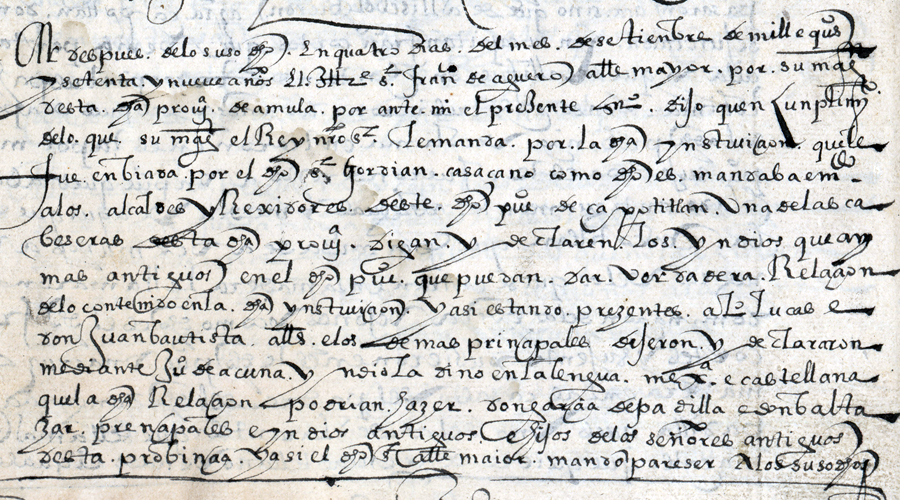 despues. delo suso dho. En quatro dias. del mes. de setienbre de mill e qus
y setenta. y nueve años El Illtre sr. franco de aguero alle mayor. por. su magt
desta. dha prova. de amula. por ante. mi el presente sno. dijo que en cunplimyo
delo. que. su magt el Rey nro sr. le manda. por. la dha ynstruiçion. que le
fue. enbiada. por el dho sr. gordian. casacano como dho es. mandaba e mo.
a los. alcaldes y Rexidores. deste. dho pueo de çapotitlan. Una de las ca
beseras desta dha prova. digan. y declaren. los. yndios que ay
mas antiguos en el dho pueo. que puedan. dar. verdadera. Relaçion
delo contenido en la. dha ynstruiçion. y asi estando. prezentes. a Lucas e
don Juan bautista. alls. e los demas prinçipales dijeron. y declararon
mediante Ju de acuna. yndio ladino en la lengua. mexa. e castellana
que la dha Relaçion podrian. hazer. don garçia de padilla e don balta
zar. prençipales e yndios antiguos. e hijos delos señores antiguos
desta. probinçia. y asi el dho sr alle maior. mando pareser A los suso dhos